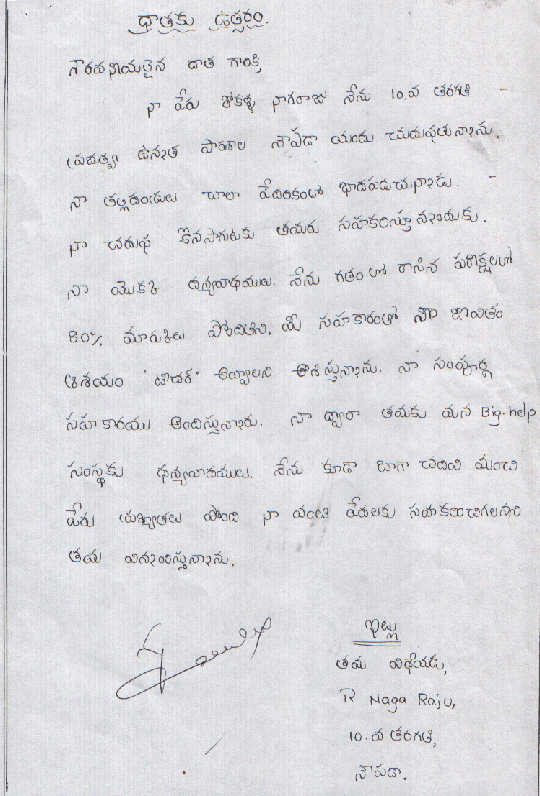 ధాతకు ఉత్తరం.
గౌరవనీయులైన దాత గారికి
నా పేరు నాగరాజు నేను 10.వ తరగతి
ఉన్నత పాఠశాల నౌపడా యందు చదువుతున్నాను.
నా తల్లిదండులు చాలా పేదరికంలో బాధపడుచున్నాడు.
నా చదువు కొనసాగుటకు తమరు సహకరిస్తూనందుకు.
నా యొక్క ధన్యవాధములు. నేను గతం లో రాసిన పరీక్షలలో
80% మారుకులు పోందితిని. మీ సహకారంతో నా జీవితం
ఆశయం "టీచర్" అవ్వాలని ఆశిస్తున్నాను. నా సంపూర్ణ
సహకారము అందిస్తున్నారు. నా ద్వారా తమకు మన Big-help
సంస్థకు ధన్యవాదములు. నేను కూడా బాగా చదివి మంచి
పేరు పొంది నా వంటి పేదలకు సహకరించగలనని
తమ విన్నవిస్తున్నాను.
ఇట్లు
తమ విధేయుడు,
R Naga Raju,
10.వ తరగతి,
నౌపడా.